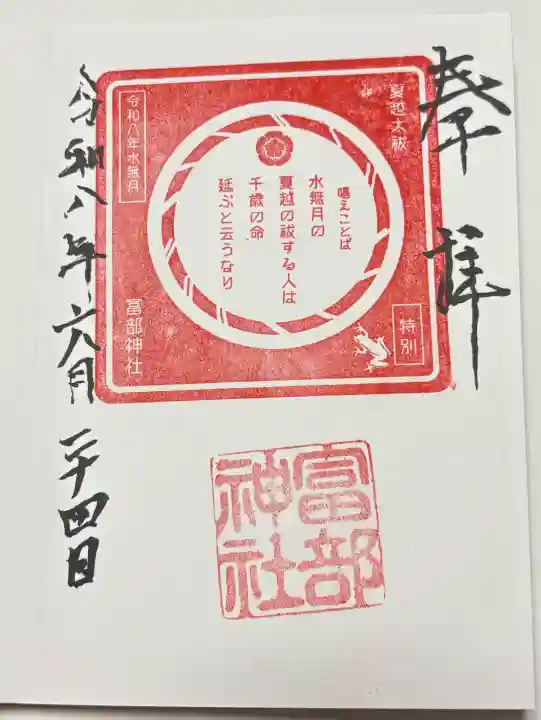 奉拝
夏越大祓
特別
唱えことば
水無月の
夏越の祓する人は
千歳の命
延ぶと云うなり
令和八年水無月
富部神社
富部
神社
令和八年六月二十四日